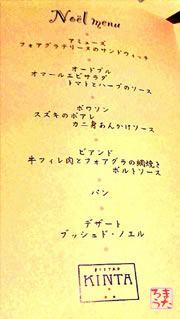 Noël menu
アミューズ
フォアグラテリーヌのサンドウィッチ
オードブル
オマールエビサラダ
トマトとハーブのソース
ポワソン
スズキのポアレ
カニ身あんかけソース
ビアンド
牛フィレ肉とフォアグラの網焼き
ポルトソース
パン
デザート
ブッシュド・ノエル
BISTRO
KINTA